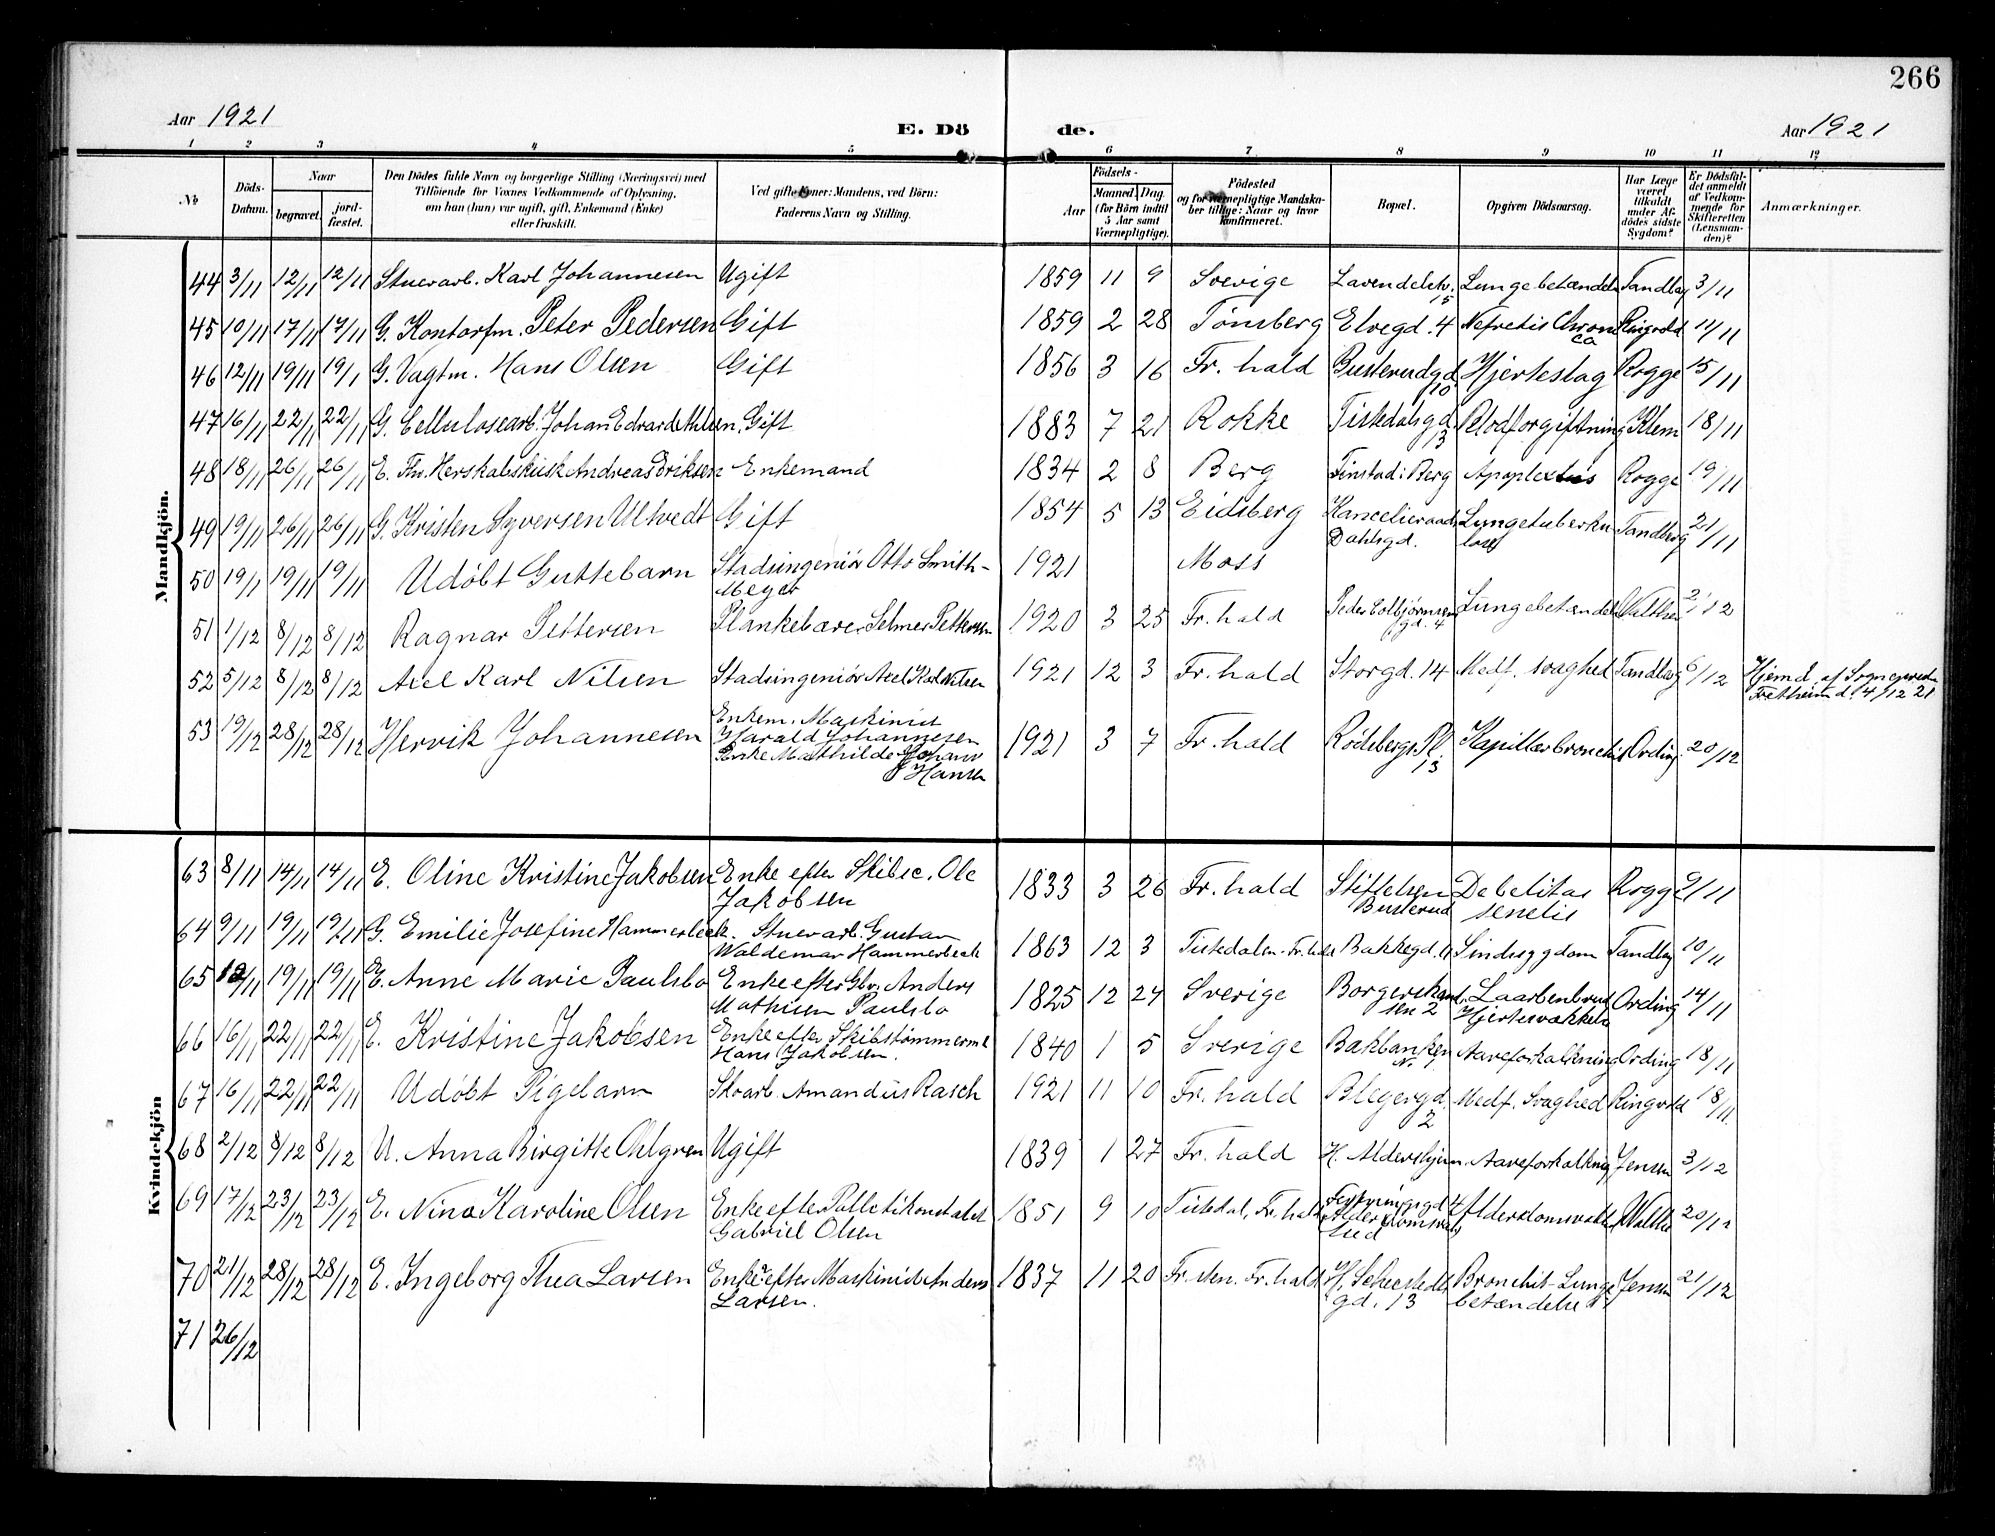 266
Aar 1921
E. Dö
de.
Aar 1921
1 2 3 4 5 6 7 8 9 10 11 12
No
Döds-Datum.
Naar
begravet.
jord-fæstet.
Den Dödes fulde Navn og borgerlige Stilling (Næringsvei) med
Tilföiende for Voxnes Vedkommende af Oplysning,
om han (hun) var ugift, gift, Enkemand (Enke)
eller fraskilt.
Ved gifte Koner: Mandens, ved Börn:
Faderens Navn og Stilling.
Födsels-
Aar
Maaned Dag
(for Börn indtil
5 Aar samt
Værnepligtige).
Födested
og for værnepligtige Mandska-
ber tillige: Naar og hvor
konfirmeret.
Bopæl.
Opgiven Dödsaarsag.
Har Læge
været
tilkaldt
under Af-
dödes sidste
Sygdom?
Er Dödsfal-
det anmeldt
af Vedkom-
mende for
Skifteretten
(Lensman-
den)?
Anmærkninger.
Mandkjön.
44 3/11 12/11 12/11 Stuerarb. Karl Johannesen Ugift 1859 11 9 Sverige Lavendelstr. 15 Lungebetændel Tandbg 3/11
45 10/11 17/11 17/11 G. Kontorfm. Peter Pedersen Gift 1859 2 28 Tønsberg Elvegd. 4 Nefretis Chronica Ringvold 11/11
46 12/11 19/11 19/1 G. Vagtm. Hans Olsen Gift 1856 3 16 Fr. hald Busterudgd 10 Hjerteslag Rogge 15/11
47 16/11 22/11 22/11 G. Cellulosearb. Johan Edvard Gift 1883 7 21 Rokke Tistedalsgd. 3 Blodforgiftning Klem 18/11
48 18/11 26/11 26/11 E. Fhv. Herskabskusk Andreas Eriksen Enkemand 1834 2 8 Berg Tinstad i Berg Rogge 19/11
49 19/11 26/11 26/11 G. Kristen Syversen Ultvedt Gift 1854 5 13 Eidsberg Kancelieraad Dahlsgd. Lungetuberku lose Tandberg 21/11
50 19/1 19/11 19/11 Udøbt Guttebarn Stadsingeniør Otto Smith-
Meyer 1921 Moss
51 1/12 8/12 8/12 Ragnar Pettersen Plankebærer Selmer Pettersen 1920 3 25 Fr. hald Peder Colbjørnsens gd. 4 Lungebetændel 2/12
52 5/12 8/12 8/12 Axel Karl Nilsen Stadsingeniør Axel Karl Nilsen 1921 12 3 Fr. hald Storgd. 14 Medf. svaghed Tandbg 6/12 Hjemd. af Sogneprest
Fretheim d. 4/12 21
53 19/12 28/12 28/12 Hervik Johannesen Enkem. Maskinist
Harald Johannesen
Enke Mathilde
Hansen 1921 3 7 Fr. hald Rødsbergs Pl. 13 Kapillærbronchit Ording 20/12
Kvindekjön
63 8/11 14/11 14/11 E. Oline Kristine Jakobsen Enke efter Skibsc. Ole
Jakobsen 1833 3 26 Fr. hald Stiftelsen Busterud Debelitas
senelis Rogge 9/11
64 9/11 19/11 19/11 G. Emilie Josefine Hammerbeck. Stuerarb. Gustav
Waldemar Hammerbeck 1863 12 3 Tistedalen. Fr. hald Bakkegd. Sindssygdom Tandbg 10/11
65 12/11 19/11 19/11 E. Anne Marie Paulsbo Enke efter Gbr. Anders
Mathisen Paulsbo 1825 12 24 Sverige Borgerskand. 2 Laarbenbrud
Hjertesvækkelse Ording 14/11
66 16/11 22/11 22/11 E. Kristine Jakobsen Enke efter Skibstømmerm.
Hans Jakobsen. 1840 1 5 Sverige Bakbanken Aareforkalkning Ording 18/11
67 16/11 22/11 22/11 Udøbt Pigebarn Skoarb. Amandus Rasch 1921 11 10 Fr. hald Blegergd. 2 Medf. Svaghed Ringvold 18/11
68 2/12 8/12 8/12 U. Anna Birgitte Ohlgren Ugift 1839 1 27 Fr. hald H. Aldershjem. Aareforkalkning Jensen 3/12
69 17/12 23/12 23/12 E. Nina Karoline Olsen Enke efter Politikonstabel
Gabriel Olsen 1851 9 10 Tistedal, Fr. hald 20/12
70 21/12 28/12 28/12 E. Ingeborg Thea Larsen Enke efter Maskinist Anders
Larsen. 1837 11 20 Fr. sten. Fr. hald H. Sehestedts
gd. 13 Bronchit-Lunge
betændelse Jensen 21/12
71 26/12